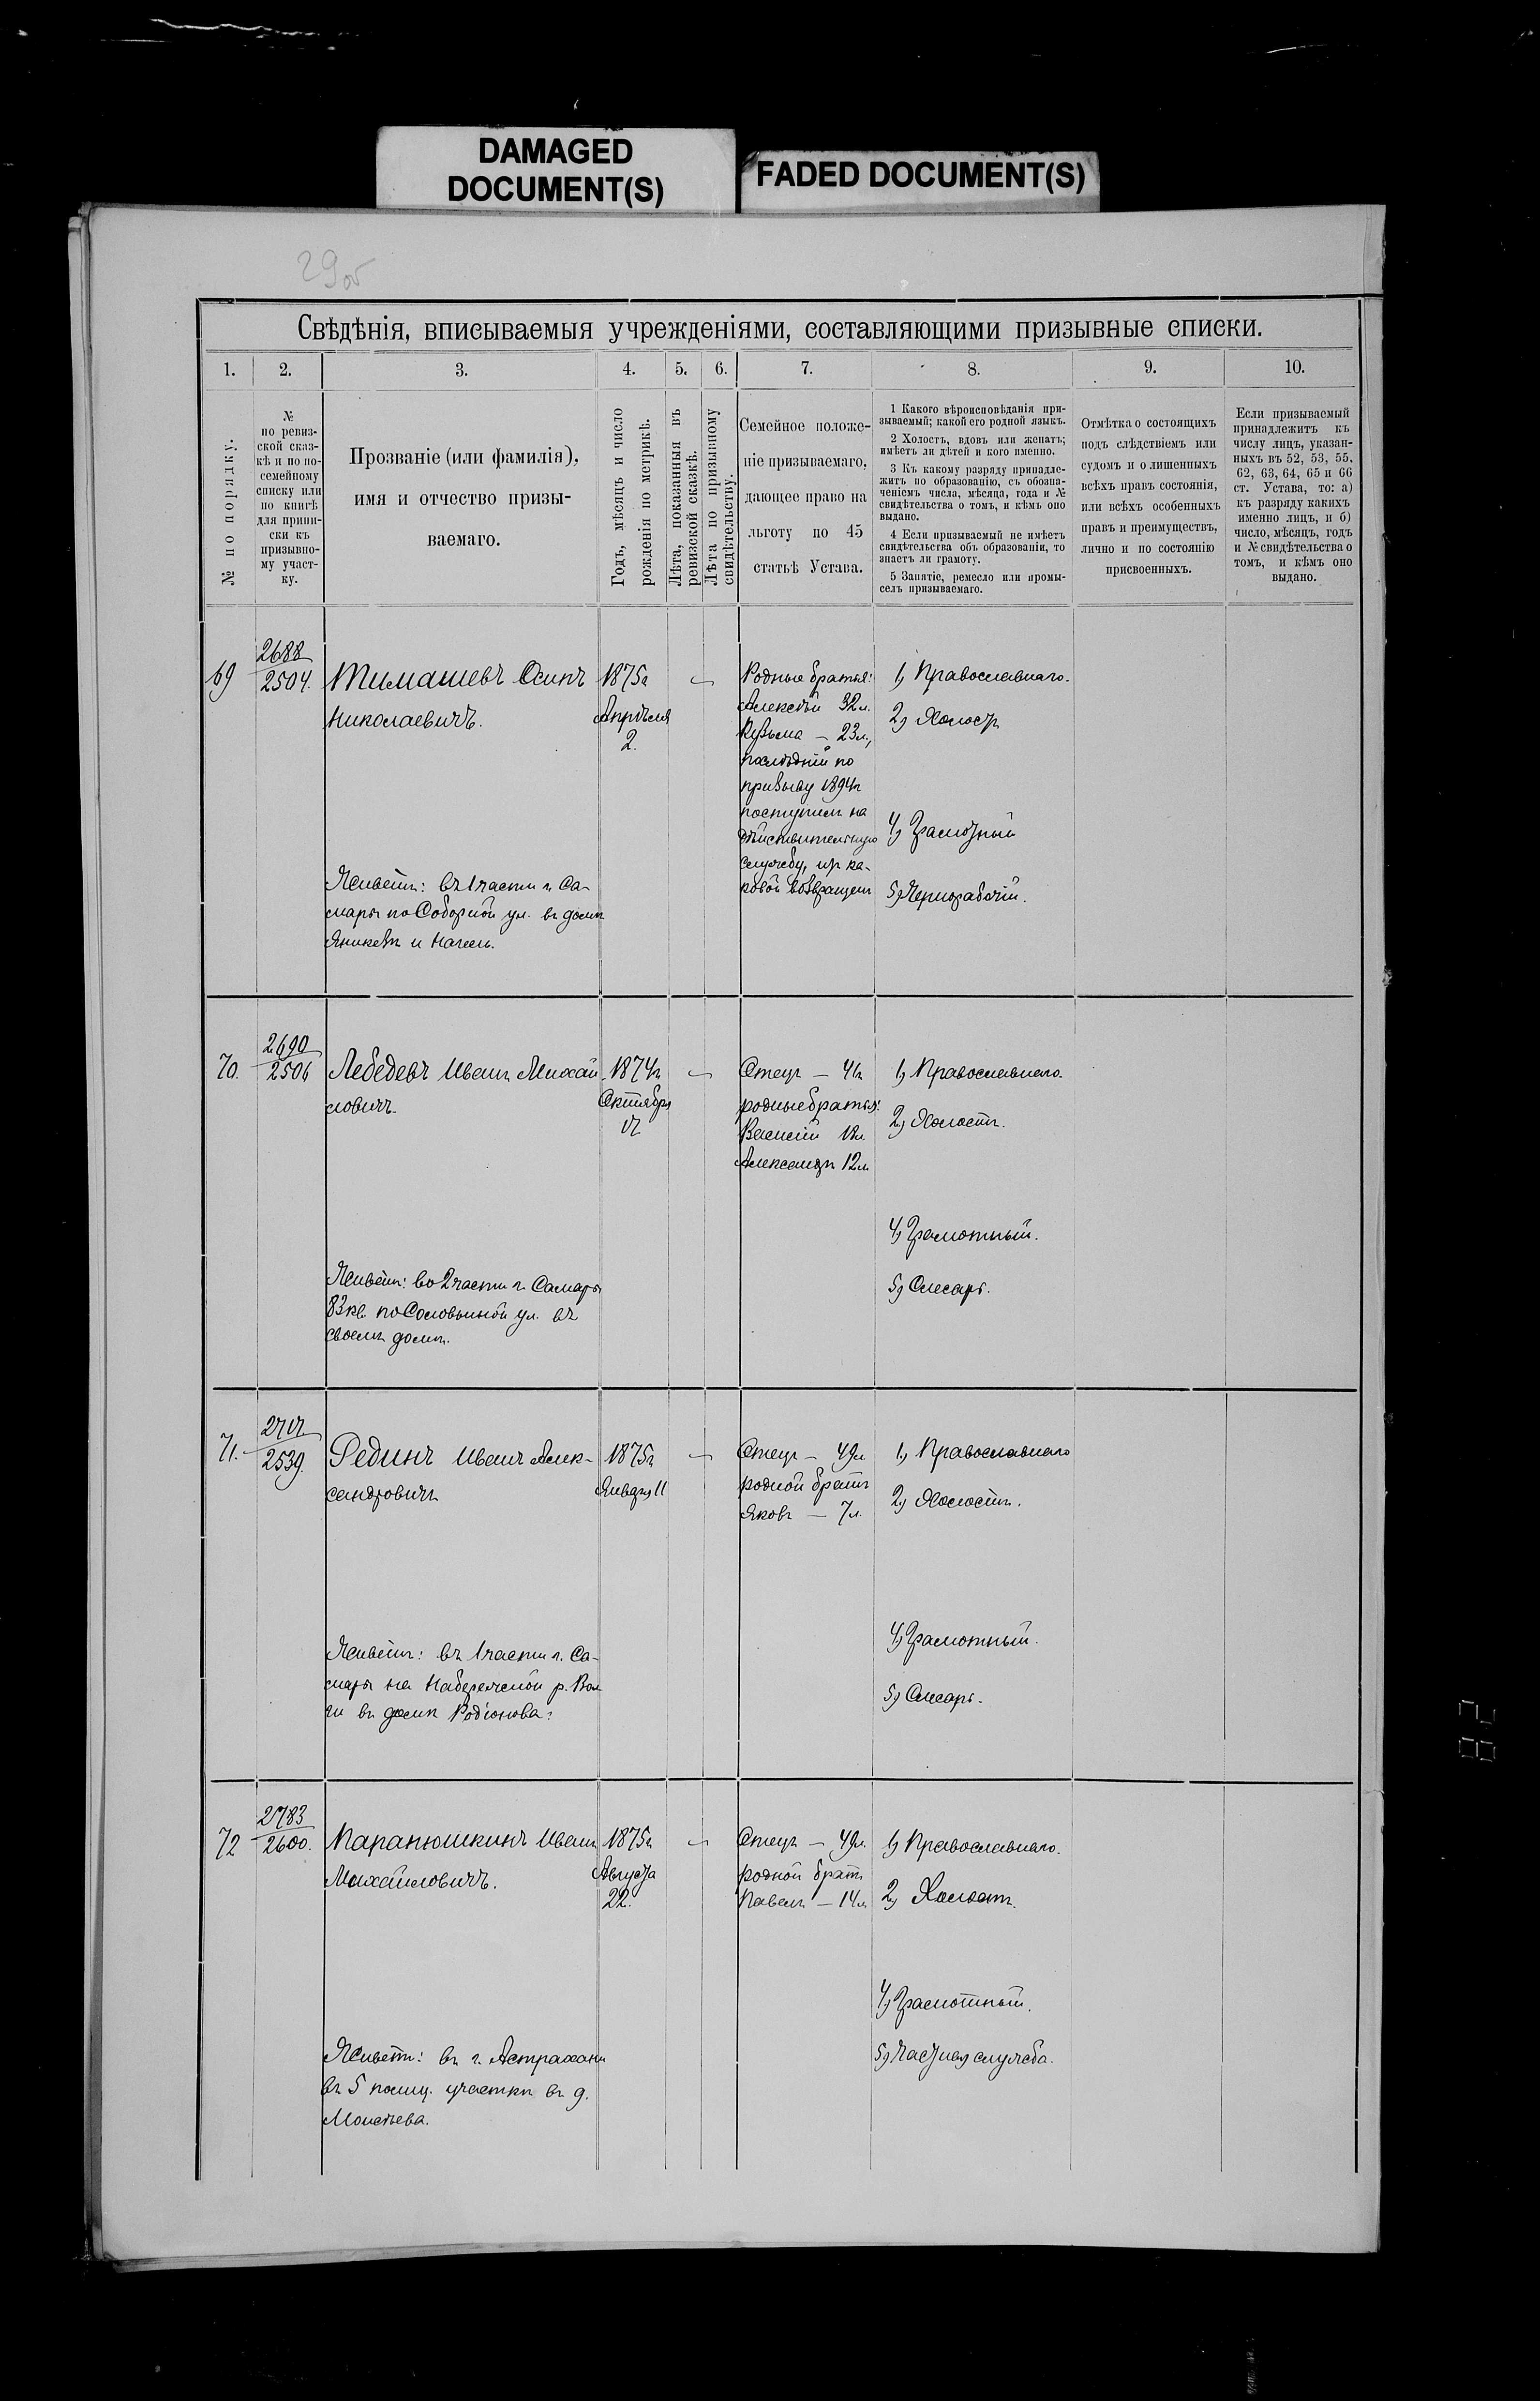 DAMAGED
DOCUMENT(S)
FADED DOCUMENT(S)
29об
Свѣдѣнія, вписываемыя учрежденіями, составляющими призывные списки.
1. 2. 3. 4. 5. 6. 7. 8. 9. 10.
№ по порядку.
№
по ревиз-
ской сказ-
кѣ и по по-
семейному
списку или
по книгѣ
для припи-
ски къ
призывно-
му участ-
ку.
Прозваніе (или фамилія),
имя и отчество призы-
ваемаго.
Годъ, мѣсяцъ и число
рожденія по метрикѣ.
Лѣта, показанныя въ
ревизской сказкѣ.
Лѣта по призывному
свидѣтельству.
Семейное положе-
ніе призываемаго,
дающее право на
льготу по 45
статьѣ Устава.
1 Какого вѣроисповѣданія при-
зываемый; какой его родной языкъ.
2 Холостъ, вдовъ или женатъ;
имѣетъ ли дѣтей и кого именно.
3 Къ какому разряду принадле-
житъ по образованію, съ обозна-
ченіемъ числа, мѣсяца, года и №
свидѣтельства о томъ, и кѣмъ оно
выдано.
4 Если призываемый не имѣетъ
свидѣтельства объ образованіи, то
знаетъ ли грамоту.
5 Занятіе, ремесло или промы-
селъ призываемаго.
Отмѣтка о состоящихъ
подъ слѣдствіемъ или
судомъ и о лишенныхъ
всѣхъ правъ состоянія,
или всѣхъ особенныхъ
правъ и преимуществъ,
лично и по состоянію
присвоенныхъ.
Если призываемый
принадлежитъ къ
числу лицъ, указан-
ныхъ въ 52, 53, 55,
62, 63, 64, 65 и 66
ст. Устава, то: а)
къ разряду какихъ
именно лицъ, и б)
число, мѣсяцъ, годъ
и № свидѣтельства о
томъ, и кѣмъ оно
выдано.
69
2688
2504.
Тимашевъ Осипъ
Николаевичъ.
Живетъ: въ 1 части г. Са-
мары по Соборной ул. въ домѣ
и
1875г
Апрѣля
2.
Родные братья:
Алексѣй 32л.
Кузьма – 23л.,
послѣдній по
призыву 1894г
поступилъ на
дѣйствительную
службу, изъ ка-
ковой возвращенъ
1) Православнаго.
2) Холостъ
4) Грамотный
5) Чернорабочій.
70.
2690
2506
Лебедевъ Иванъ Михай
ловичъ.
Живетъ: во 2 части г. Самары
83 кв. по Соловьиной ул. въ
своемъ домѣ.
1874г
Октября
17
Отецъ – 41г
родные братья:
Василій 18л
Александръ 12л
1) Православнаго.
2) Холостъ.
4) Грамотный.
5) Слесарь.
71.
2717
2539.
Рединъ Иванъ Алек-
сандровичъ
Живетъ: въ 1 части г. Са-
мары на Набережной р. Вол
ги въ домѣ Родіонова.
1875г
Января 11
Отецъ – 49л
родной братъ
Яковъ – 7л.
1) Православнаго
2) Холостъ.
4) Грамотный.
5) Слесарь.
72
2783
2600.
Паранюшкинъ Иванъ
Михайловичъ.
Живетъ: въ г. Астрахани
въ 5 полиц. участкѣ въ д.
Моисѣева.
1875г
Августа
22.
Отецъ – 49л.
родной братъ
Павелъ – 14л
1) Православнаго.
2) Холостъ.
4) Грамотный.
5) Частная служба.
82